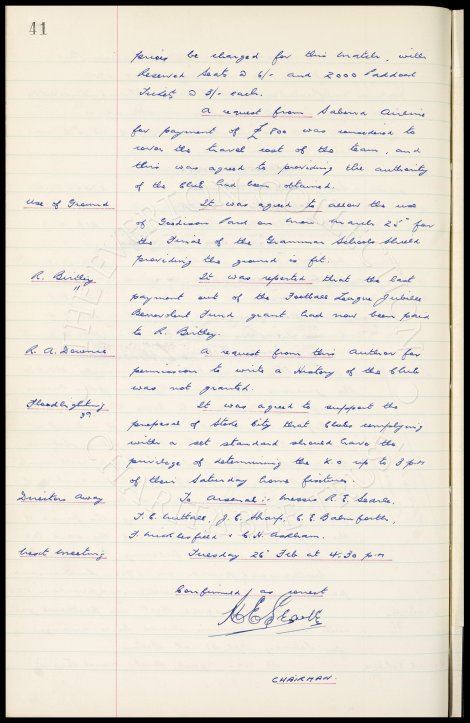 41
prices be charged for this match, with
Reserved Seats @ 6/- and 2000 Paddock
Tickets @ 3/- each.
A request from Sabena Airline
for payment of £800 was considered to
cover the travel cost of the team, and
this was agreed to providing the authority
of the Club had been obtained.
Use of Ground
It was agreed to allow the use
of Goodison Park on Mon March 25th for
the Final of the Grammar Schools Shield
providing the ground is fit.
R. Birtley
It was reported that the last
payment out of the Football League Jubilee
Benevolent Fund grant had now been paid
to R. Birtley.
R. A. Downie
A request from this Author for
permission to write a History of the Club
was not granted.
Floodlighting
39
It was agreed to support the
proposal of Stoke City that Clubs complying
with a set standard should have the
privilege of determining the K.O up to 8 pm
of their Saturday home fixtures.
Directors Away
To Arsenal :- Messrs R. E. Searle.
T. C. Nuttall, J. C. Sharp, C. E. Balmforth,
F. Micklesfield & C. H. Askham.
Next Meeting
Tuesday 26th Feb at 4.30 pm
Confirmed as correct
CHAIRMAN.